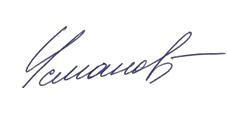 Усманов